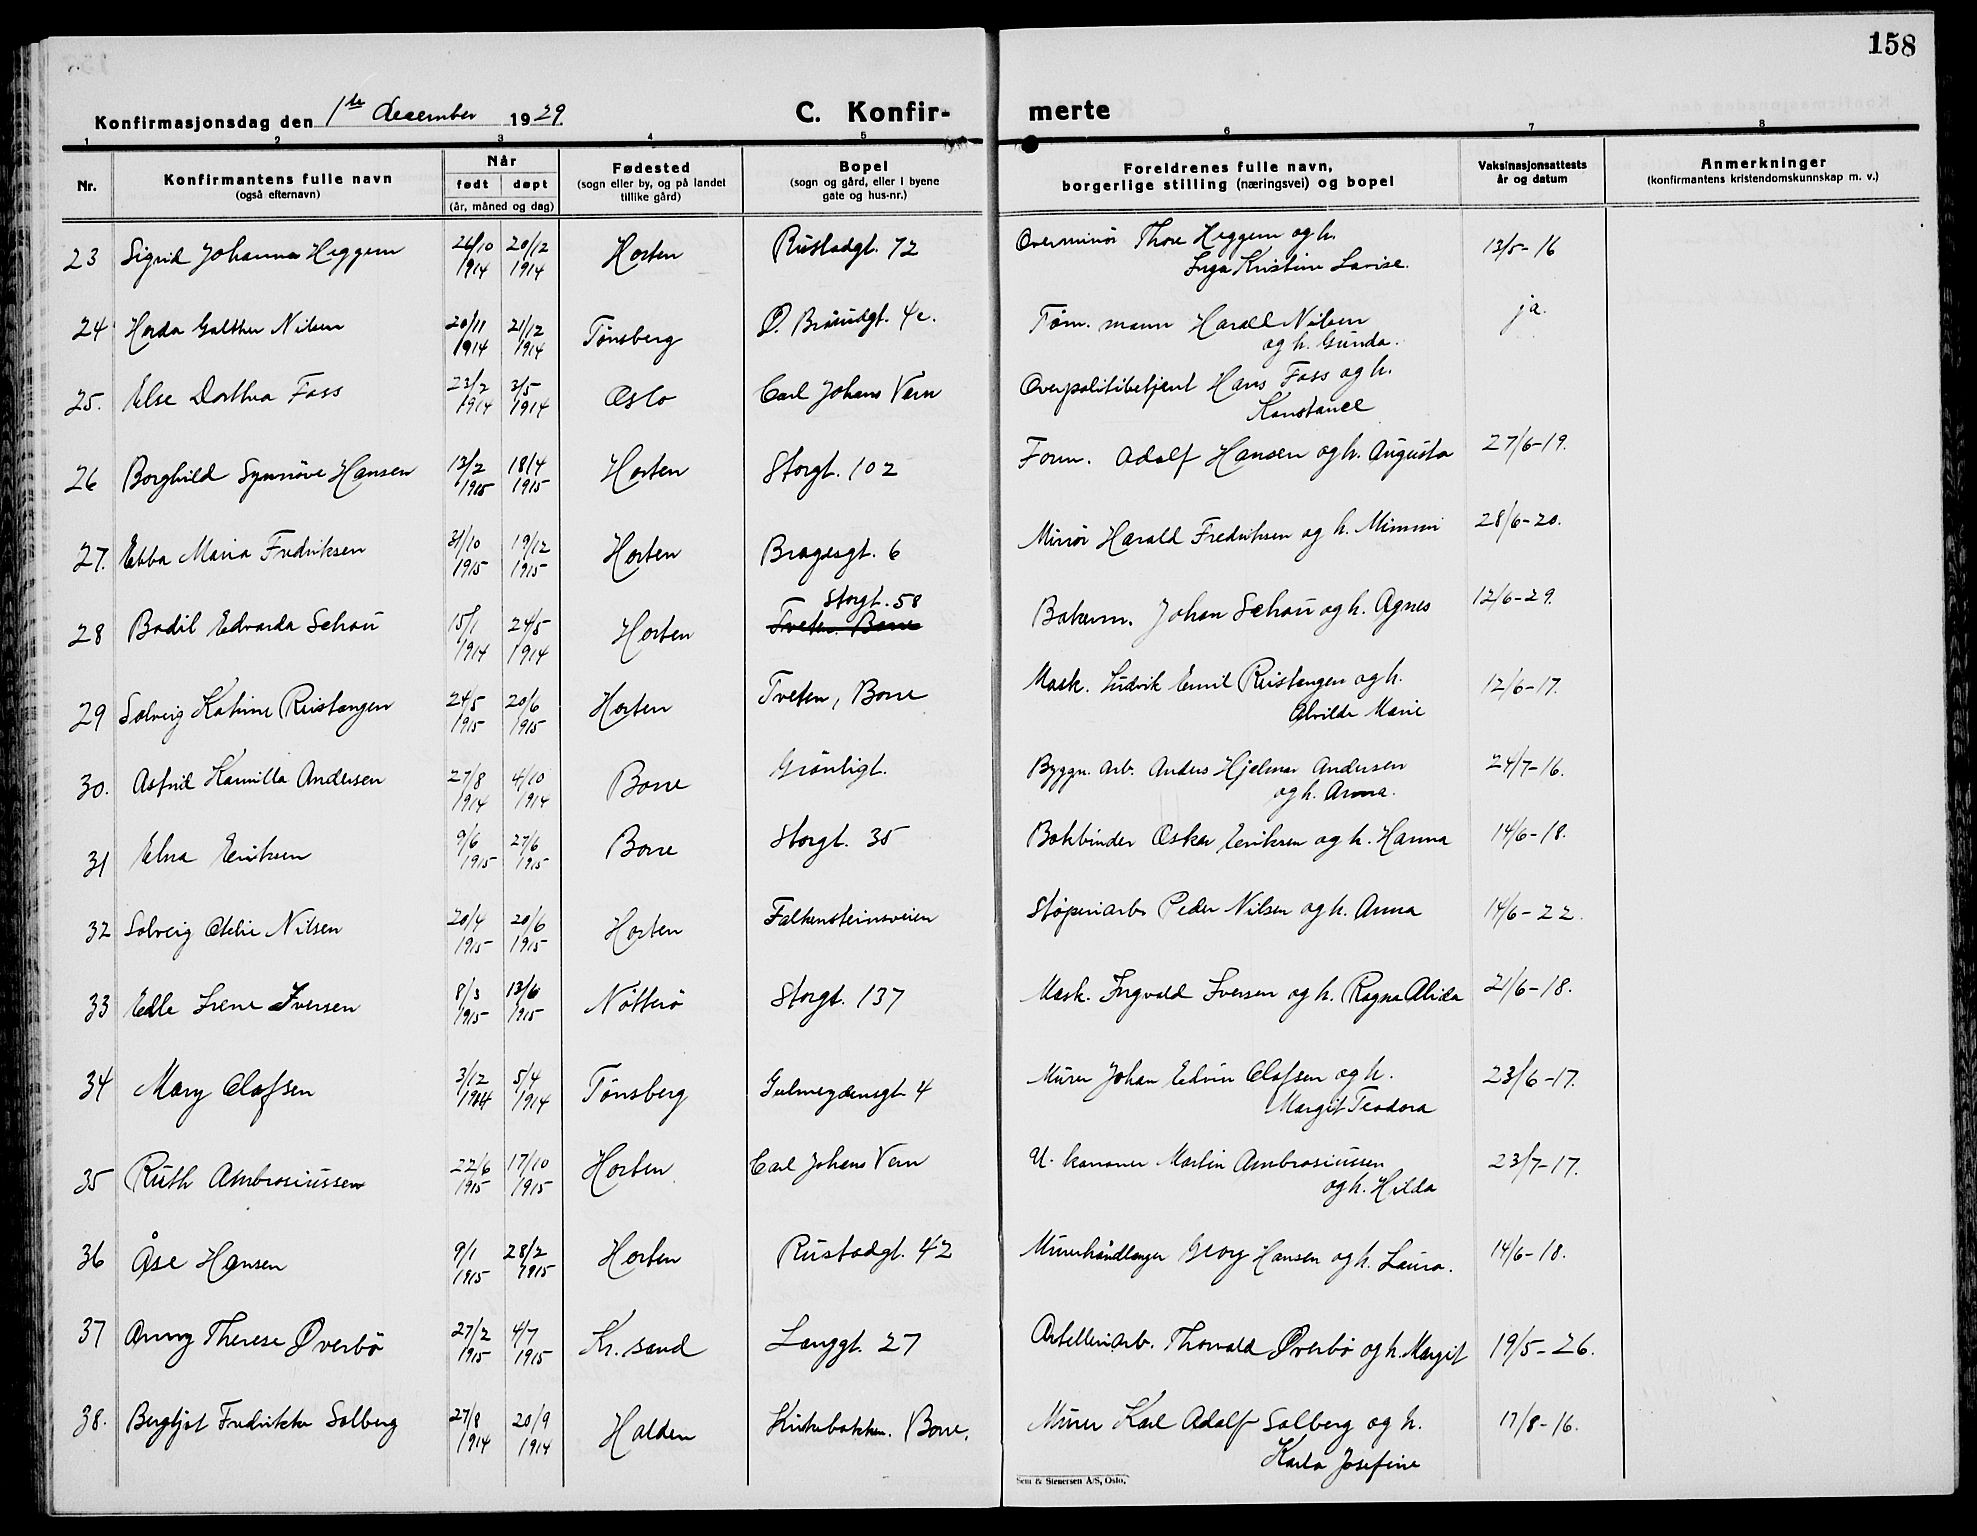 158
Konfirmasjonsdag den 1te december 1929.
C. Konfir-
merte
1 2 3 4 5 6 7 8
Nr.
Konfirmantens fulle navn
(også efternavn)
Når
født døpt
(år, måned og dag)
Fødested
(sogn eller by, og på landet
tillike gård)
Bopel
(sogn og gård, eller i byene
gate og hus-nr.)
Foreldrenes fulle navn,
borgerlige stilling (næringsvei) og bopel
Vaksinasjonsattests
år og datum
Anmerkninger
(konfirmantens kristendomskunnskap m. v.)
23 Sigrid Johanna Heggem 26/10 1914 20/12 1914 Horten Rustadgt. 72 Overminör Thore Heggem og h. 13/5-16
Inga Kristine Lovise.
24 Herda Nilsen 20/11 1914 21/12 1914 Tønsberg O. Bruudgt. 4c. Töm. mann Harald Nilsen ja.
og h. Gunda.
25. Else Dorthea Foss 23/2 1914 3/5 1914 Oslo Carl Johans Vern Overpolitibetjent Hans Foss og h.
Konstance
26 Borghild Synnöve Hansen 13/2 1915 18/4 1915 Horten Storgt. 102 Form. Adolf Hansen og h. Augusta 27/6-19.
27. Ebba Maria Fredriksen 31/10 1915 19/12 1915 Horten Bragesgt. 6 Minör Harald Fredriksen og h. Mimmi 28/6-20.
Storgt. 58
28 Bodil Edvarda Schou 15/1 1914 24/5 1914 Horten Tveten Borre Bakerm. Johan Schou og h. Agnes 12/6-29.
29 Solveig Katrine Reistangen 24/5 1915 20/6 1915 Horten Tveten, Borre Mask. Ludvik Emil Reistangen og h. 12/6-17.
Alvilde Marie
30. Astrid Kamilla Andersen 27/8 1914 4/10 1914 Borre Grönligt. Byggn. arb. Anders Hjelmar Andersen 24/7-16.
og h. Anna.
31 Elna Eriksen 9/6 1915 27/6 1915 Borre Storgt. 35 Bokbinder Oskar Eriksen og h. Hanna 14/6-18.
32 Solveig Otelie Nilsen 20/4 1915 20/6 1915 Horten Falkensteinsveien Støperiarb. Peder Nilsen og h. Anna 14/6-22.
33 Edle Irene Iversen 8/3 1915 13/6 1915 Nötterö Storgt. 137 Mask. Ingvald Iversen og h. Ragna Alida 21/6-18.
34 Mary Olafsen 3/12 5/4 1914 Tønsberg Gulmeydensgt 4 Murer Johan Edvin Olafsen og h. 23/6-17.
Margit Teodora
35 Ruth Ambrosiussen 22/6 1915 17/10 1915 Horten Carl Johans Vern U. kanoner Martin Ambrosiussen 23/7-17.
og h. Hilda
36 Åse Hansen 9/1 1915 28/2 1915 Horten Rustadgt. 42 Murerhåndlanger Georg Hansen og h. Laura. 14/6-18.
37 Anny Therese Øverbö 27/2 1915 4/7 1915 Kr. sand Langgt. 27 Artelleriarb. Thorvald Øverbö og h. Margit 19/5-26.
38. Bergljot Fredrikke Solberg 27/8 1914 20/9 1914 Halden Kirkebakken. Borre. Murer Karl Adolf Solberg og h. 17/8-16.
Karla Josefine
Sem & Stenersen A/S, Oslo.